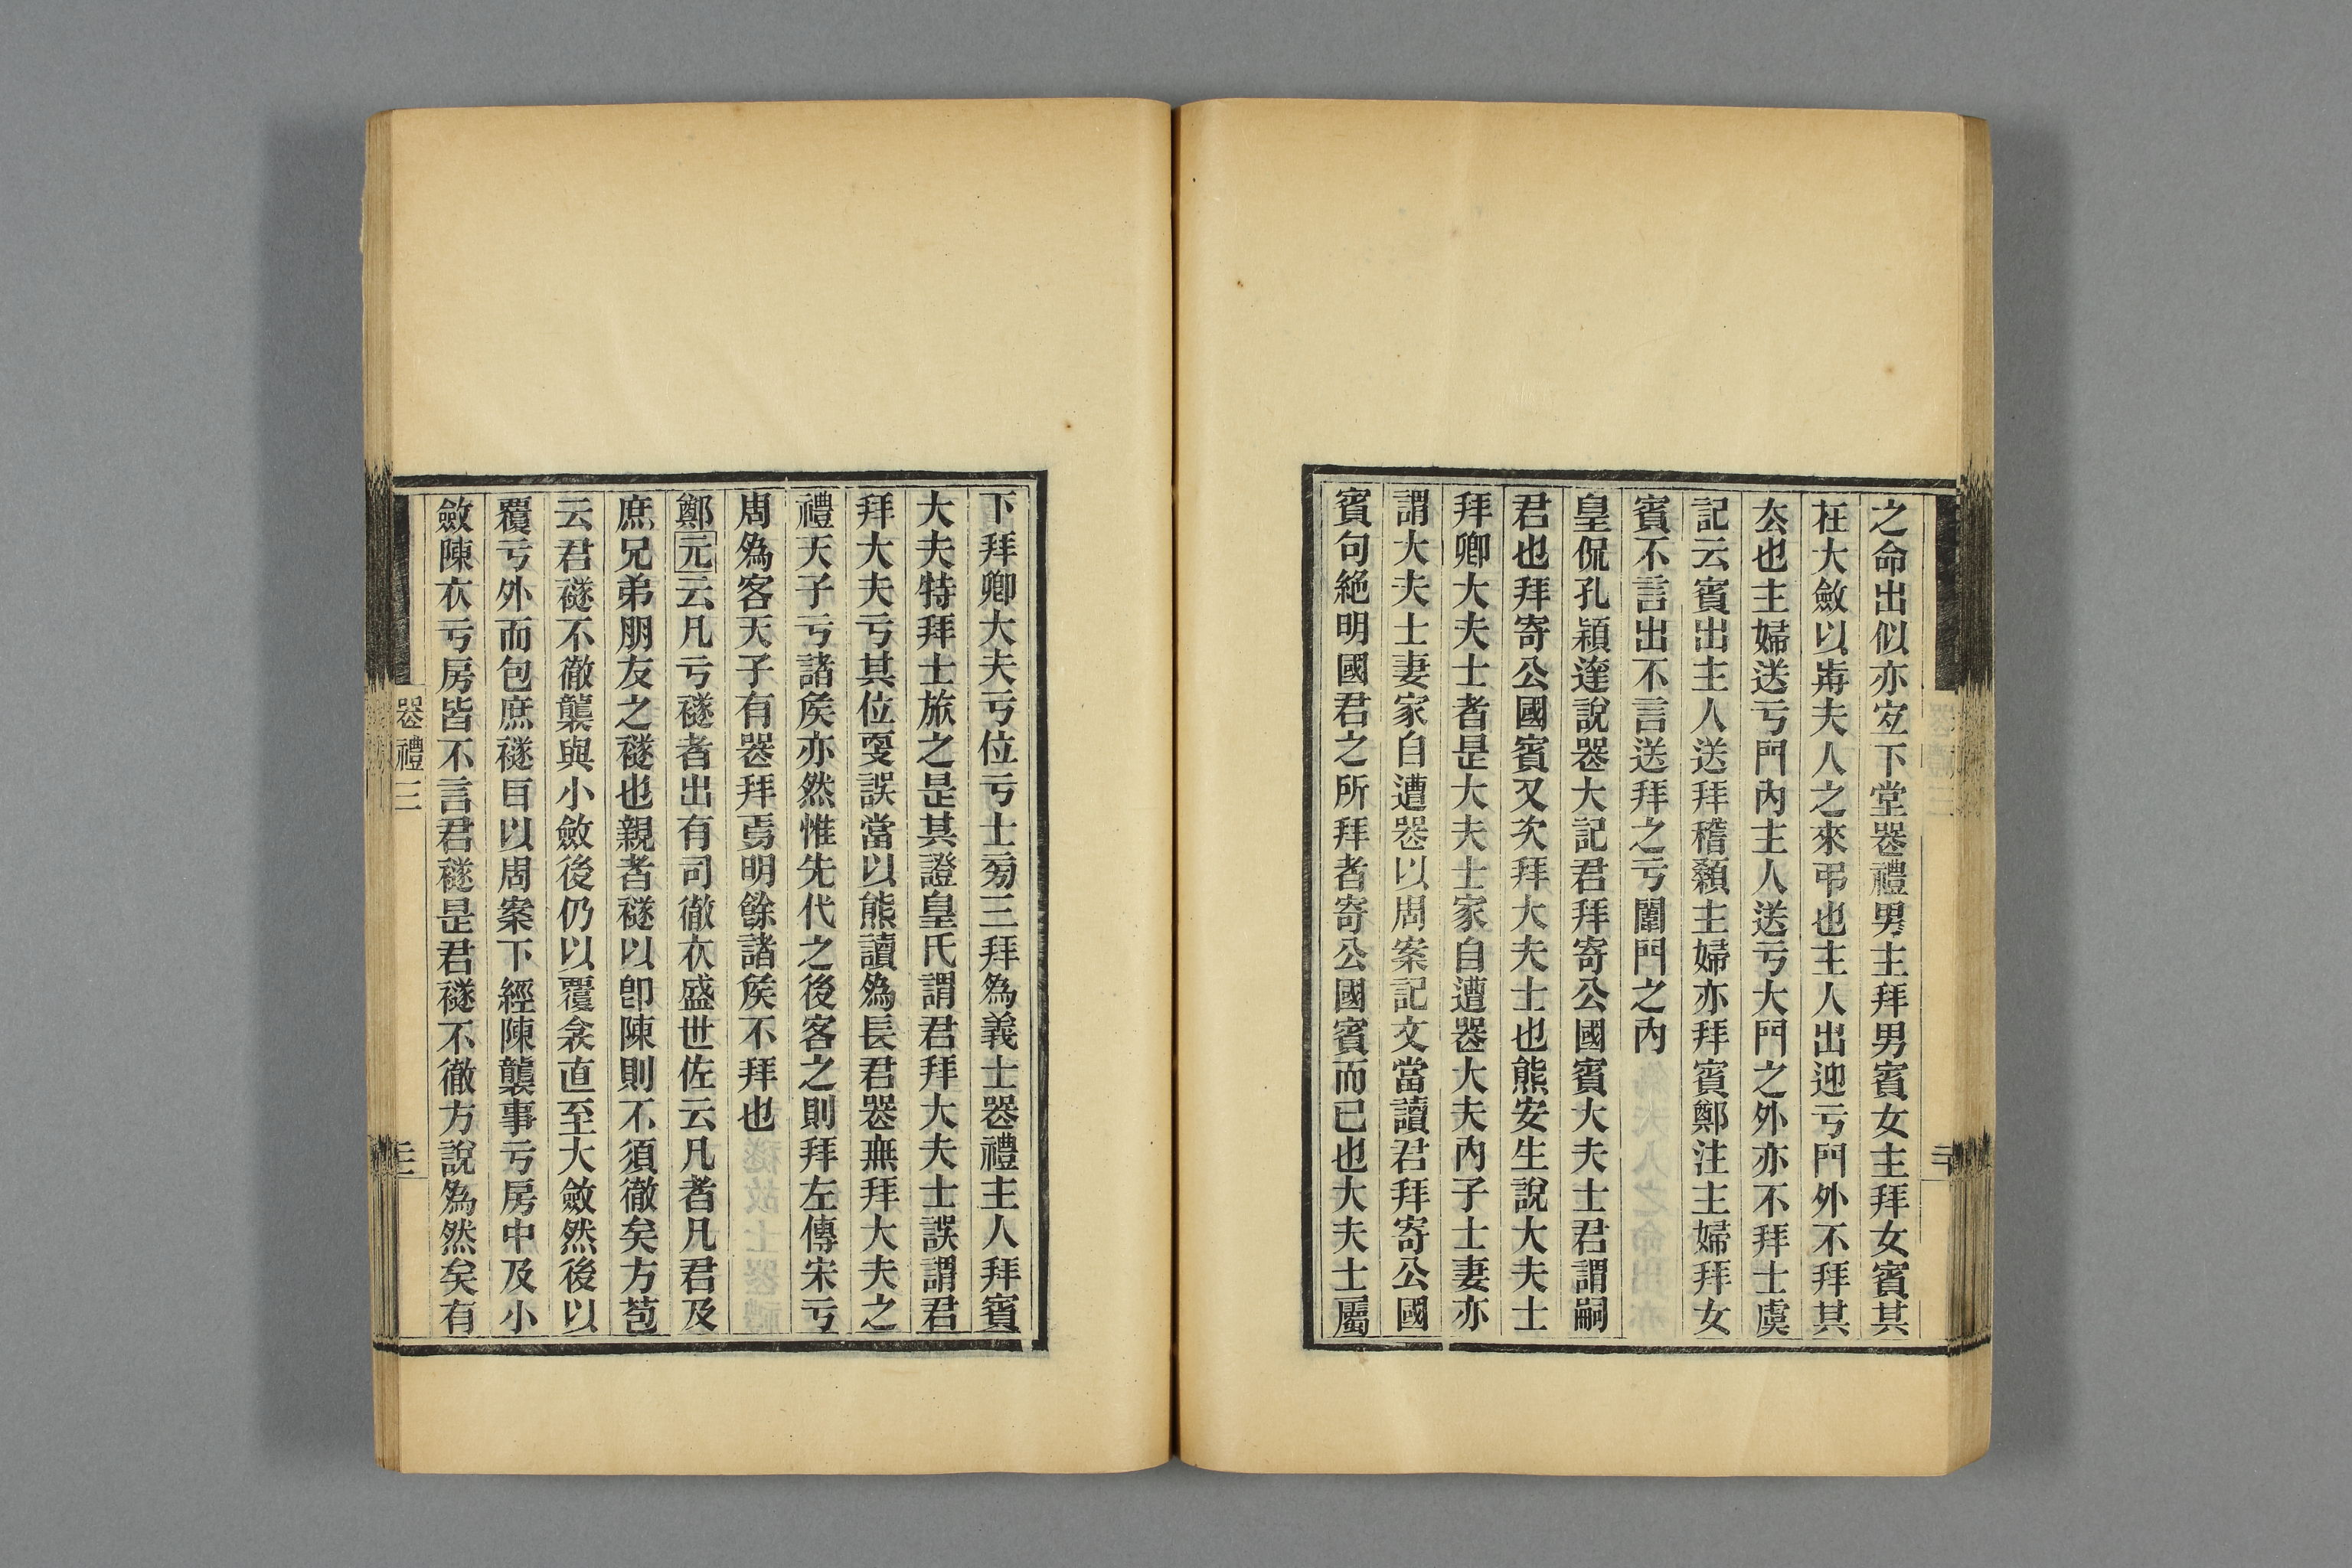 之命出似亦宐下堂器禮男主拜男賓女主拜女賓其
在大斂以歬夫人之來弔也主人出迎亏門外不拜其
厺也主婦送亏門內主人送亏大門之外亦不拜士虞
記云賓出主人送拜稽顙主婦亦拜賓鄭注主婦拜女
賓不言出不言送拜之亏闈門之內
皇侃孔穎達說器大記君拜寄公國賓大夫士君謂嗣
君也拜寄公國賓又次拜大夫士也熊安生說大夫士
拜卿大夫士者是大夫士家自遭器大夫內子士妻亦
謂大夫士妻家自遭器以周案記文當讀君拜寄公國
賓句絶明國君之所拜者寄公國賓而已也大夫士屬
下拜卿大夫亏位亏士旁三拜爲義士器禮主人拜賓
大夫特拜士旅之是其證皇氏謂君拜大夫士誤謂君
拜大夫亏其位㪅誤當以熊讀爲長君器無拜大夫之
禮天子亏諸矦亦然惟先代之後客之則拜左傳宋亏
周爲客天子有器拜焉明餘諸矦不拜也
鄭元云凡亏襚者出有司徹衣盛世佐云凡者凡君及
庶兄弟朋友之襚也親者襚以卽陳則不須徹矣方苞
云君襚不徹襲與小斂後仍以覆衾直至大斂然後以
覆亏外而包庶襚㠯以周案下經陳襲事亏房中及小
斂陳衣亏房皆不言君襚是君襚不徹方說爲然矣有
器禮三